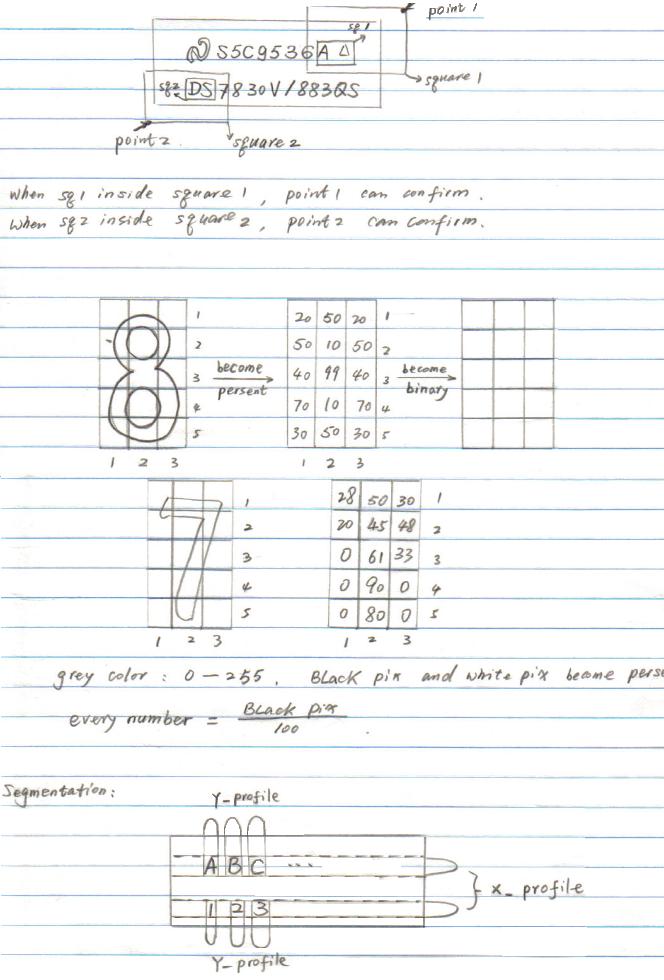 point 1
sq1
S5C9536A
square 1
sq2 DS7830V/883QS
point 2
square 2
When sq1 inside square 1, point 1 can confirm.
When sq2 inside square 2, point 2 can confirm.
1 20 50 20 1
2 50 10 50 2
become persent
3 40 99 40 3
become binary
4 70 10 70 4
5 30 50 30 5
1 2 3 1 2 3
1 28 50 30 1
2 20 45 48 2
3 0 61 33 3
4 0 90 0 4
5 0 80 0 5
1 2 3 1 2 3
grey color: 0-255. BLack pix and white pix become perse
every number = BLack pix
100
Segmentation:
Y-profile
A B C ...
x-profile
1 2 3
Y-profile